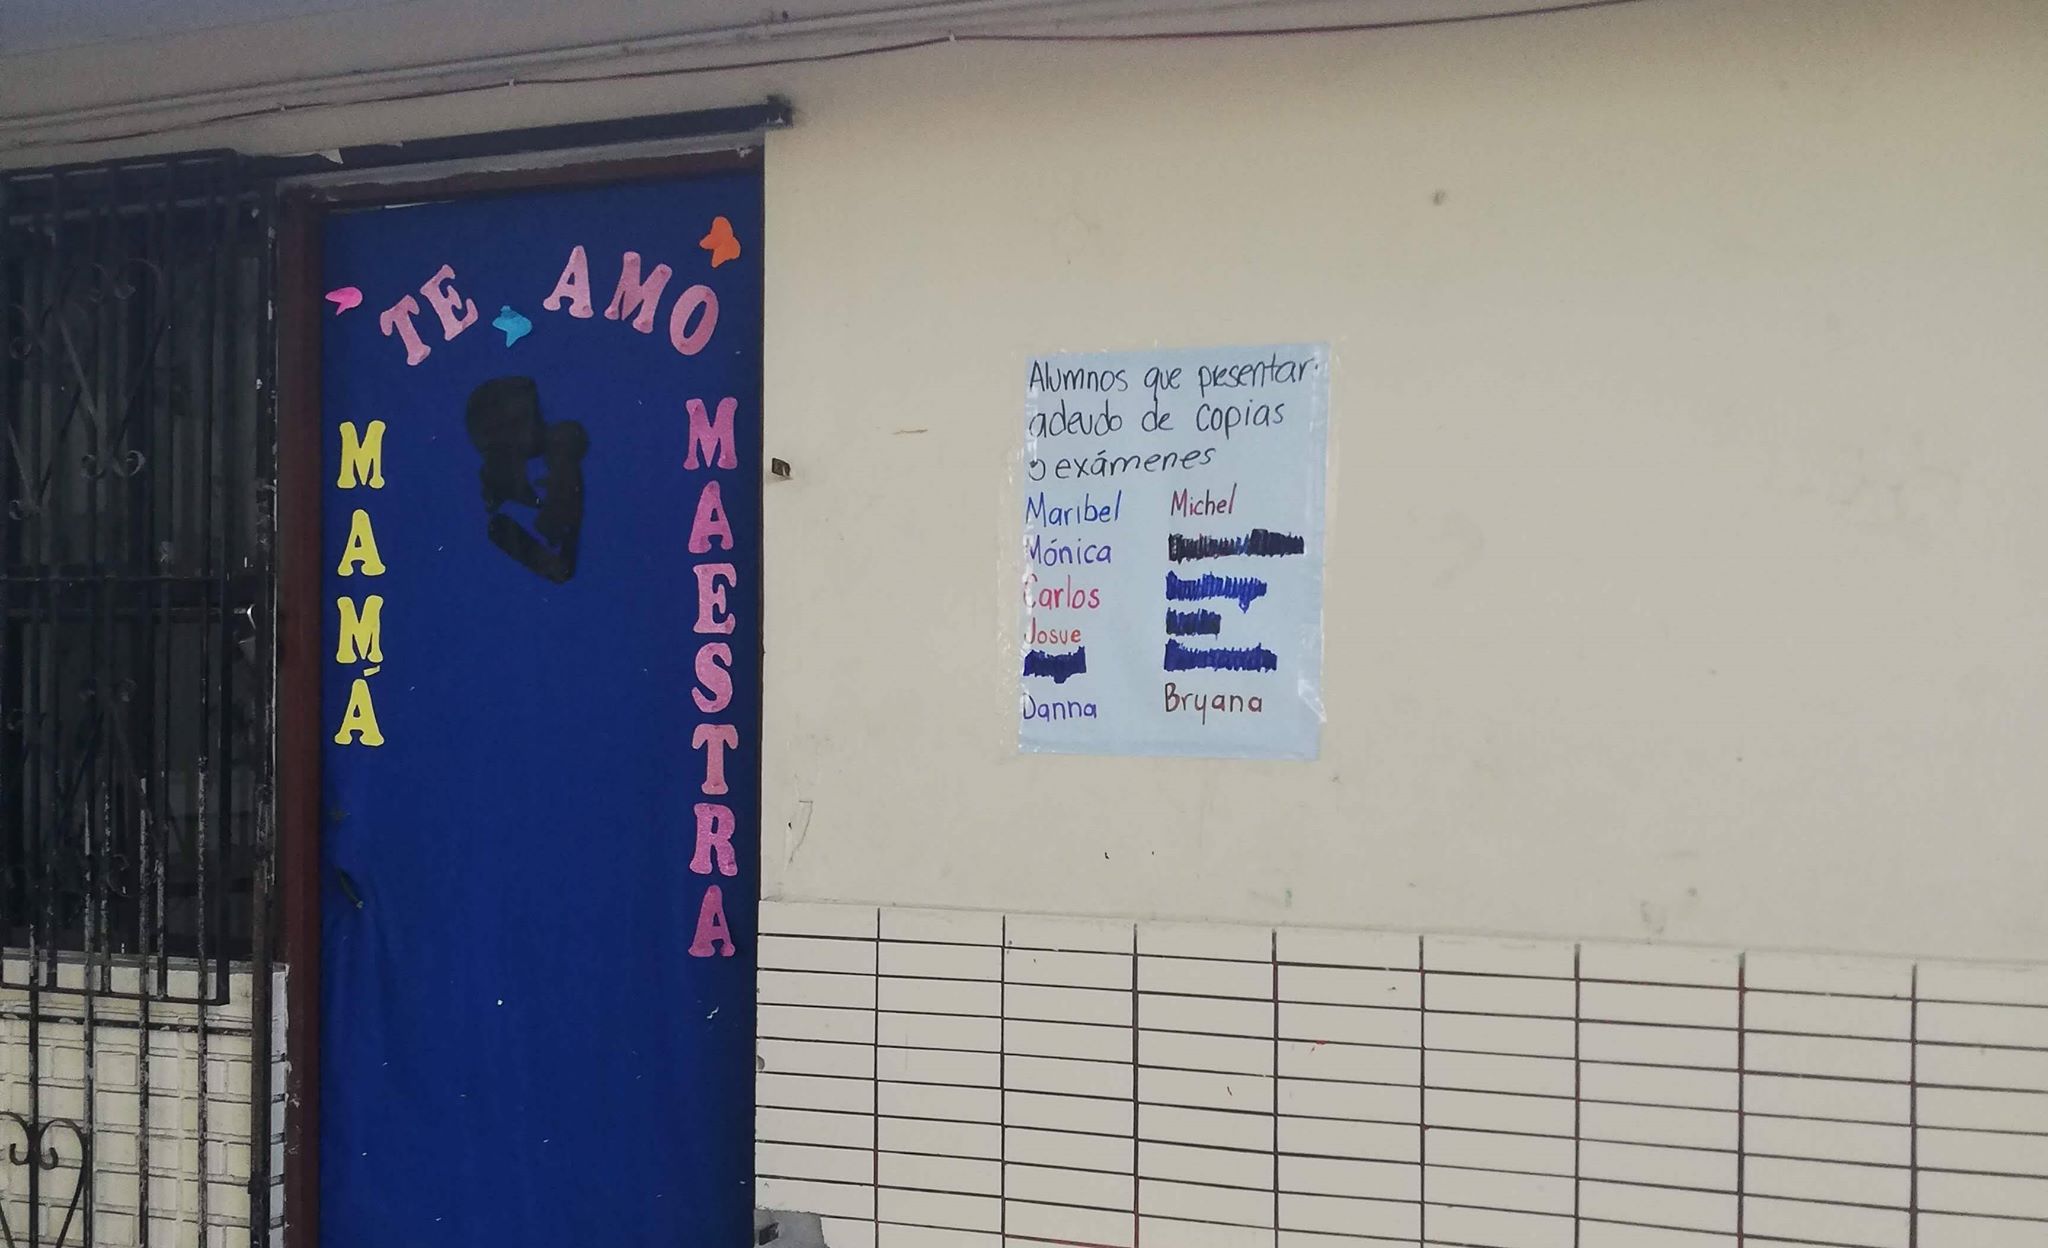 TE AMO
MAMÁ
MAESTRA
Alumnos que presentar
adeudo de copias
o exámenes
Maribel Michel
Mónica
Carlos
Josue
Danna Bryana